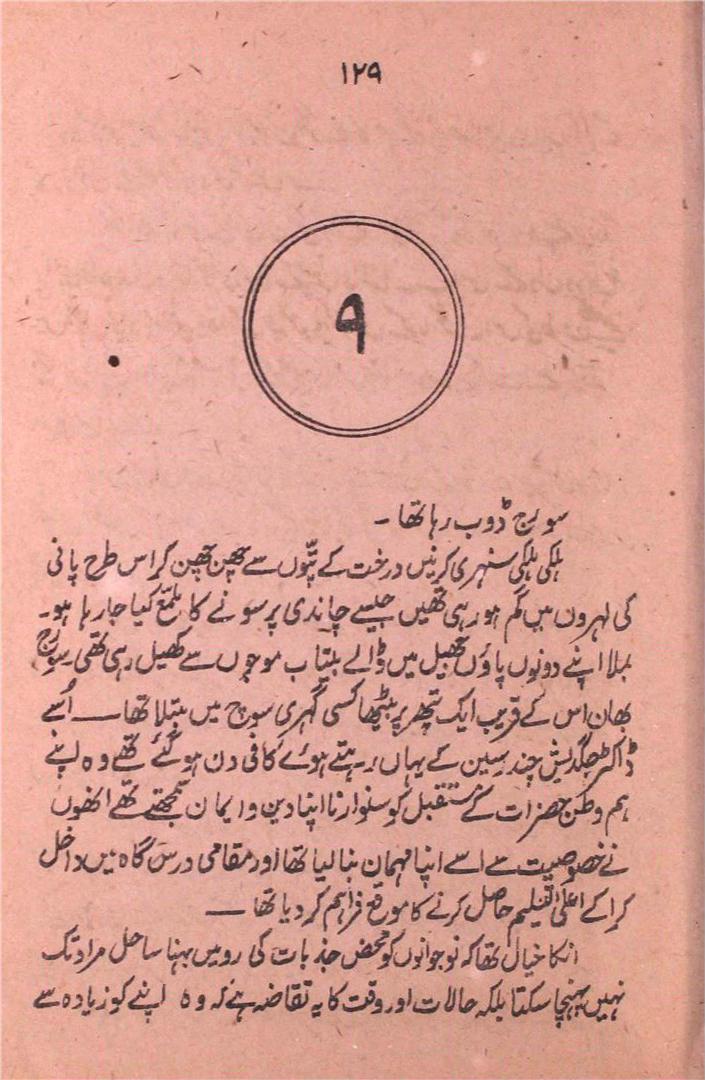 ۱۲۹
۹
سورج ڈوب رہا تھا ۔
ہلکی ہلکی سنہری کرنیں درخت کے پتّوں سے چھن چھن کر اس طرح پانی
کی لہروں میں گم ہو رہی تھیں جیسے چاندی پر سونے کا ملمّع کیا جا رہا ہو۔
بملا اپنے دونوں پاؤں جھیل میں ڈالے بیتاب موجوں سے کھیل رہی تھی سورج
بھان اس کے قریب ایک پتھر پر بیٹھا کسی گہری سوچ میں مبتلا تھا ــــ اُسے
ڈاکٹر جگدیش چندر سین کے یہاں رہتے ہوئے کافی دن ہو گئے تھے وہ اپنے
ہم وطن حضرات کے مستقبل کو سنوارنا اپنا دین و ایمان سمجھتے تھے انھوں
نے خصوصیت سے اسے اپنا مہمان بنا لیا تھا اور مقامی درس گاہ میں داخل
کرا کے اعلیٰ تعلیم حاصل کرنے کا موقع فراہم کر دیا تھا ــــ
انکا خیال تھا کہ نوجوانوں کو محض جذبات کی رو میں بہنا ساحل مراد تک
نہیں پہنچا سکتا بلکہ حالات اور وقت کا یہ تقاضہ ہے کہ وہ اپنے کو زیادہ سے